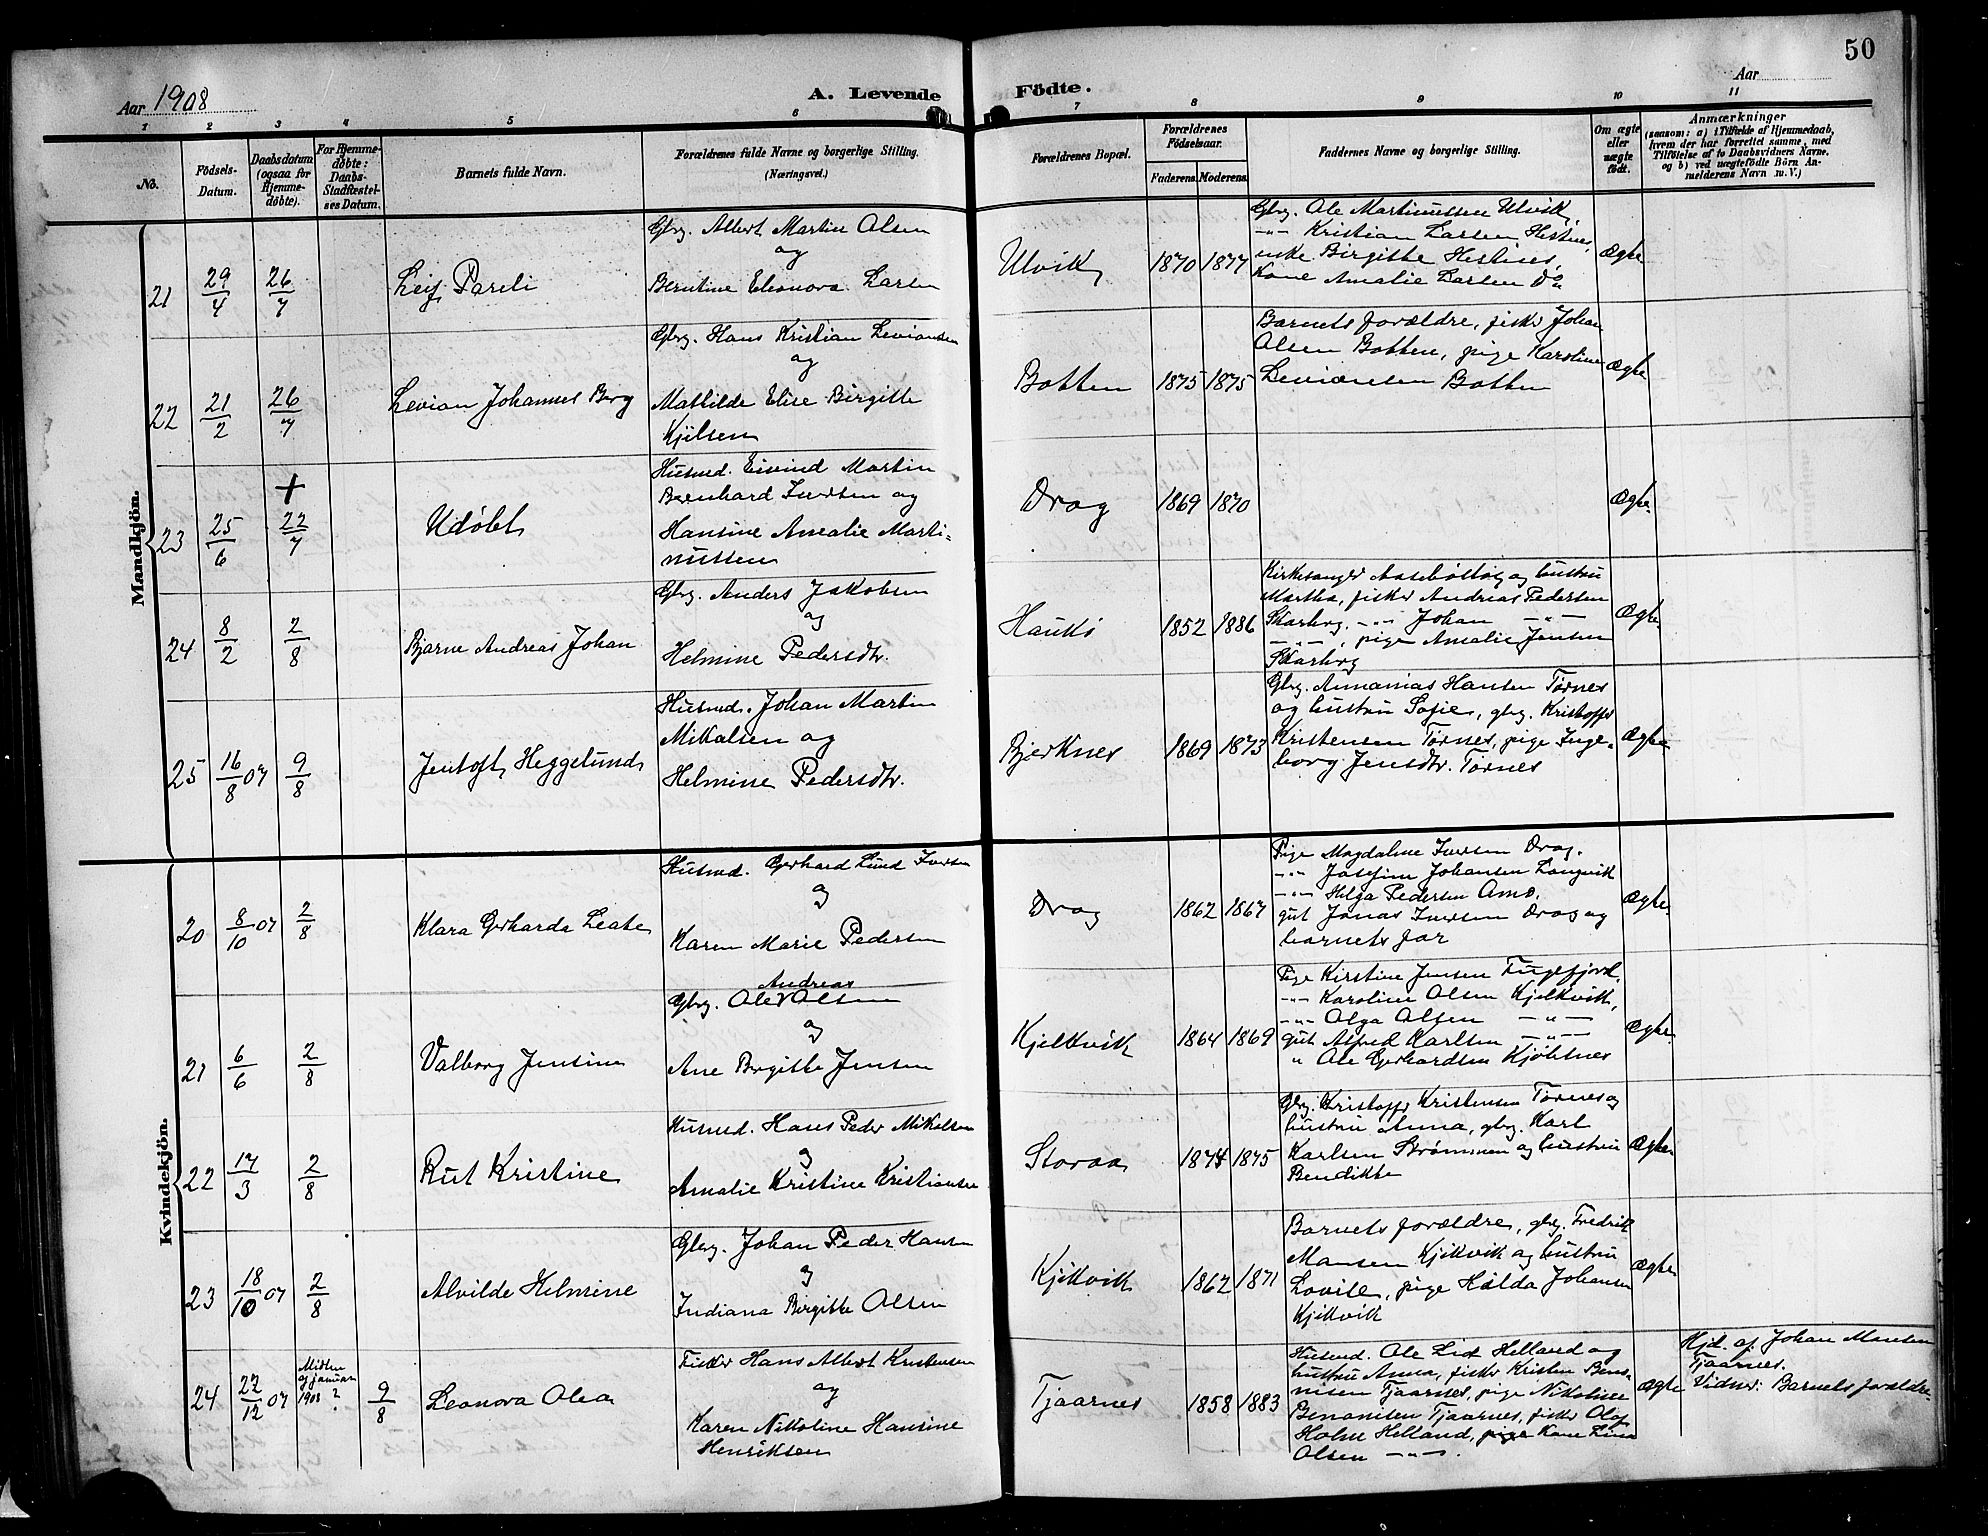 50
Aar 1908
A. Levende Födte.
Aar
1 2 3 4 5 6 7 8 9 10 11
No.
Födsels-Datum.
Daabsdatum (ogsaa for Hjemme-døbte).
For Hjemme-døbte: Daabs-Stadfæstel-ses Datum.
Barnets fulde Navn.
Forældrenes fulde Navne og borgerlige Stilling. (Næringsvei.)
Forældrenes Bopæl.
Forældrenes Fødselsaar.
Faderens. Moderens.
Faddernes Navne og borgerlige Stilling.
Om ægte eller uægte født.
Anmærkninger
(saasom: a) i Tilfælde af Hjemmedaab, hvem der har forrettet samme, med Tilföielse af to Daabsvidners Navne, og b) ved uægtefödte Börn An-melderens Navn m.V.)
Mandkjön.
21 29/4 26/7 Leif Pareli
Gbrg. Albert Martin Olsen
og
Berntine Eleonora Larsen
Ulvik 1870 1877
Gbrg. Ole Martinussen Ulvik,
-"- Kristian Larsen Hestnes,
enke Birgitte Hestnes,
Kone Amalie Larsen Do
Ægte
22 21/2 26/7 Levian Johannes Berg
Gbrg. Hans Kristian Leviansen
og
Mathilde Elise Birgitte
Kjilsen
Botten 1875 1875
Barnets forældre, fisker Johan
Olsen Botten, pige Karoline
Leviansen Botten
Ægte
23 25/6 + 22/7 Udøbt
Husmd. Eivind Martin
Bernhard Iversen og
Hansine Amalie Marti-
nussen
Drag 1869 1870
Ægte
24 8/2 2/8 Bjarne Andreas Johan
Gbrg. Anders Jakobsen
og
Helmine Pedersdtr.
Haukø 1852 1886
Martha, fisker Andreas Pedersen
Skarberg, -"- Johan -"-
-"-, pige Amalie Jensen
Skarberg
Ægte
25 16/8 07 9/8 Jentoft Heggelund
Husmd. Johan Martin
Mikalsen og
Helmine Pedersdtr.
Bjerknes 1869 1873
Gbrg. Annanias Hansen Tørnes
og hustru Sofie, gbrg. Kristoffer
Kristensen Tørnes, pige Inge-
borg Jensdtr. Tørnes
Ægte
Kvindekjön.
20 8/10 07 2/8 Klara Gerharda Leate
Husmd. Gerhard Lund Iversen
og
Karen Marie Pedersen
Drag 1862 1867
Pige Magdaline Iversen Drag.
-"- Josefine Johansen Langvik
-"- Helga Pedersen Amo.
gut Jonas Iversen Drag og
barnets far
Ægte
21 6/6 2/8 Valborg Jensine
Andreas
Gbrg. Ole Olsen
og
Ane Birgitte Jensen
Kjelkvik 1864 1869
Pige Kirstine Jensen Fuglefjord,
-"- Karoline Olsen Kjelkvik,
-"- Olga Olsen -"-
gut Alfred Karlsen -"-
" Ole Gerhardsen Kjøbsnes
Ægte
22 17/3 2/8 Rut Kristine
Husmd. Hans Peder Mikalsen
og
Amalie Kristine Kristiansen
Storaa 1874 1875
Gbrg. Kristoffer Kristensen Tørnes og
hustru Anna, gbrg. Karl
Karlsen Strømmen og hustru
Bendikte
Ægte
23 18/10 07 2/8 Alvilde Helmine
Gbrg. Johan Peder Hansen
og
Indiana Birgitte Olsen
Kjikvik 1862 1871
Barnets forældre, gbrg. Fredrik
Mansen Kjikvik og hustru
Lovise, pige Hilda Johansen
Kjikvik
Ægte
24 22/12 07 Midten af januar 1908 ? 9/8 Leonora Olea
Fisker Hans Albert Kristensen
og
Karen Nikoline Hansine
Henriksen
Tjaarnes 1858 1883
Husmd. Ole Lid Helland og
hustru Anna, fisker Kristen Ben-
nisen Tjaarnes, pige Nikoline
Benonisen Tjaarnes, fisker Olaf
Holm Helland, pige Kone Lina
Olsen -"-
Ægte
Hjd. af Johan Mansen
Tjaarnes.
Vidner: Barnets forældre.